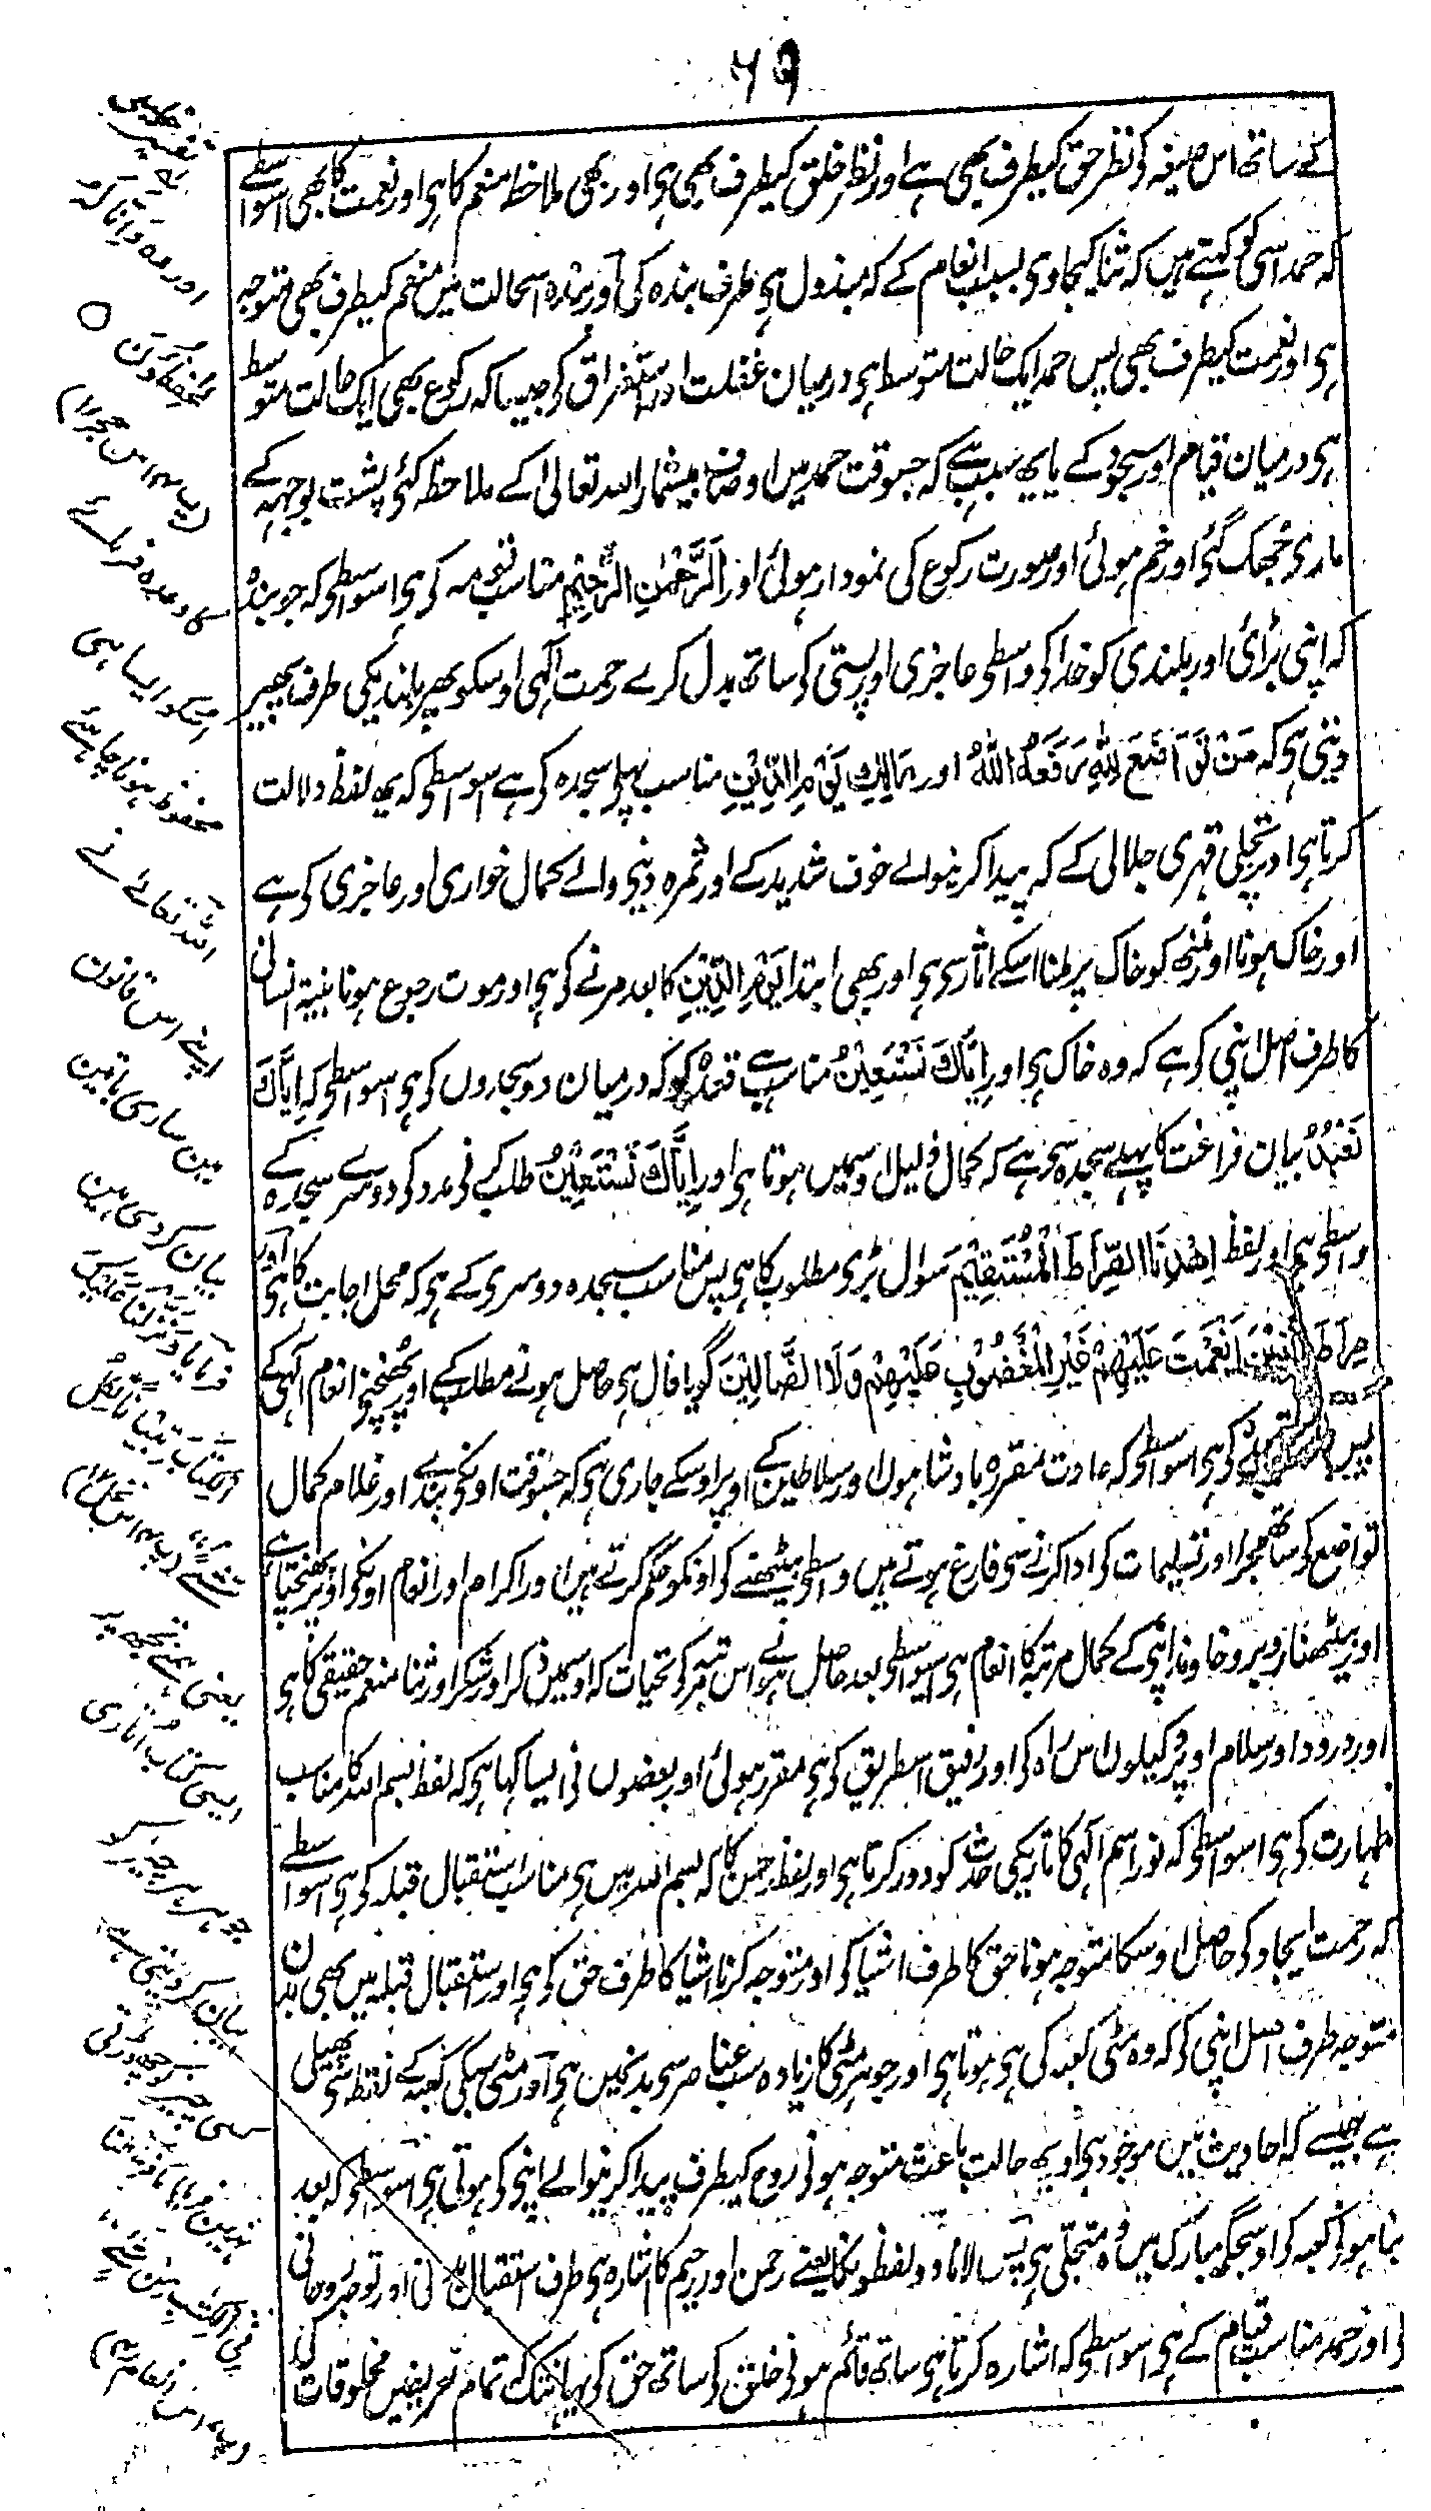 ۶۹
کے ساتھ اس صیغہ کو نظر حق کیطرف بھی ہے اور نظر خلق کیطرف بھی ہی اور بھی ملاحظہ منعم کا ہی اور نعمت کا بھی اسواسطے
کہ حمد اسی کو کہتے ہیں کہ ثنا کیجاوی بسبب انعام کے کہ مبذول ہی طرف بندہ کی اور بندہ اسحالت میں منعم کیطرف بھی متوجہ
ہی اور نعمت کیطرف بھی پس حمد ایک حالت متوسط ہی درمیان غفلت اور استغراق کی جیسا کہ رکوع بھی ایک حالت متوسط
ہی درمیان قیام اور سجود کے یا یہ سبب ہے کہ جسوقت حمد میں اوصاف بیشمار اللہ تعالیٰ کے ملاحظہ کئی پشت بوجہہ کے
ماری جھک گئی اور خم ہوئی اور صورت رکوع کی نمودار ہوئی اور اَلرَّحْمٰنِ الرَّحِیْمِ مناسب قومہ کی ہی اسواسطی کہ جو بندہ
کہ اپنی بڑائی اور بلندی کو خدا کی واسطی عاجزی اور پستی کی ساتھ بدل کرے رحمت الٰہی اوسکو پھر بلندیکی طرف پھیر
دیتی ہی کہ مَنْ تَوَاضَعَ لِلّٰہِ رَفَعَہُ اللّٰہُ اور مٰالِكِ یَوْمِ الدِّیْنِ مناسب پہلی سجدہ کی ہے اسواسطی کہ یہ لفظ دلالت
کرتا ہی اوپر تجلی قہری جلالی کے کہ پیدا کرنیوالے خوف شدید کے اور ثمرہ دینی والے کمال خواری اور عاجزی کی ہے
اور خاک ہونا اور منھ کو خاک پر ملنا اسکے اثار سی ہی اور بھی ابتدا یَوْمِ الدِّیْنِ کا بعد مرنے کی ہی اور موت رجوع ہونا بنیۃ انسانی
کا طرف اصل اپنی کی ہے کہ وہ خاک ہی اور اِیَّاكَ نَسْتَعِیْنُ مناسب ہے قعدہ کو کہ درمیان دو سجدوں کی ہی اسواسطی کہ اِیَّاكَ
نَعْبُدُ بیان فراغت کا پہلے سجدہ سی ہے کہ کمال ذلیل اوسمیں ہوتا ہی اور اِیَّاكَ نَسْتَعِیْنُ طلب کرنی مدد کی دوسرے سجدہ کے
واسطی ہی اور لفظ اِهْدِنَا الصِّرَاطَ الْمُسْتَقِیْمَ سوال بڑی مطلوب کا ہی پس مناسب سجدہ دوسری کے ہی کہ محل اجابت کا ہی اور
صِرَاطَ الَّذِیْنَ اَنْعَمْتَ عَلَیْهِمْ غَیْرِ الْمَغْضُوْبِ عَلَیْهِمْ وَلَا الضَّالِیْنَ گویا فال ہی حاصل ہونے مطلب کے اور پہنچنے انعام الٰہی کے
پس کی ہی اسواسطی کہ عادت مقررہ بادشاہوں اور سلاطین کے اوپر اوسکے جاری ہی کہ جسوقت اونکی بندے اور غلام کمال
تواضع کی ساتھ مجرا اور تسلیمات کی ادا کرنے سی فارغ ہوتے ہیں واسطی بیٹھنے کی اونکو حکم کرتے ہیں اور اکرام اور انعام اونکی اوپر پہنچتا ہے
اور بیٹھنا روبرو خاوند اپنی کے کمال مرتبہ کا انعام ہی اسیواسطی بعد حاصل ہونے اس مرتبہ کی تحیات کہ اوسمیں ذکر اور شکر اور ثنا منعم حقیقی کا ہی
اور درود اور سلام اوپر وکیلوں اس راہ کی اور رفیق اسطریق کی ہی مقرر ہوئی اور بعضوں نی ایسا کہا ہی کہ لفظ بسم اللہ کا مناسب
طہارت کی ہی اسواسطی کہ نور اسم الٰہی کا تاریکی حدث کو دور کرتا ہی اور لفظ رحمن کا کہ بسم اللہ میں ہی مناسب استقبال قبلہ کی ہی اسواسطے
کہ رحمت ایجاد کی حاصل اوسکا متوجہ ہونا حق کا طرف اشیا کی اور متوجہ کرنا اشیا کا طرف حق کی ہی اور استقبال قبلہ میں بھی بدن
متوجہ طرف اصل اپنی کی کہ وہ مٹی کعبہ کی ہی ہوتا ہی اور جوہر مٹی کا زیادہ سب عناصر سی بدنمیں ہی اور مٹی سبکی کعبہ کے نقطہ سی پھیلی
ہے جیسے کہ احادیث میں موجود ہی اور یہ حالت باعث متوجہ ہونی روح کیطرف پیدا کرنیوالے اپنی کی ہوتی ہی اسواسطی کہ بعد
بنا ہونی کعبہ کی اوسجگہ مبارک میں وہ متجلی ہی پس لانا دو لفظونکا یعنے رحمن اور رحیم کا اشارہ ہی طرف استقبال بدنی اور توجہ روحانی
کی اور حمد مناسب قیام کے ہی اسواسطی کہ اشارہ کرتا ہی ساتھ قائم ہونی خلق کی ساتھ حق کی یہانتک تمام تعریفیں مخلوقات کی
تفسیر
اور عدہ وَاِنَّا لَهُ
لَحٰفِظُوْنَ ○
(پ ۱۴ س حجر ۱)
کا وعدہ فرمائے
اسکو ایسا ہی
محفوظ ہونا چاہئے
اللہ تعالے نے
اپنے اس قانون
مین ساری باتین
بیان کردی ہین
فرمایا وَنَزَّلْنَا عَلَیْكَ
الْكِتٰبَ تِبْیَانًا لِّكُلِّ
شَیْءٍ (پ ۱۴ س نحل ۱۲)
یعنی ہمنے تجھ پر
ایسی کتاب اتاری
جو ہر ہر چیز کو
بیان کر دیتی ہے
کسی چیز کو چھوڑتی
نہین فرمایا مَا فَرَّطْنَا
فِی الْكِتٰبِ مِنْ شَیْءٍ
(پ ۷ س انعام ۴)